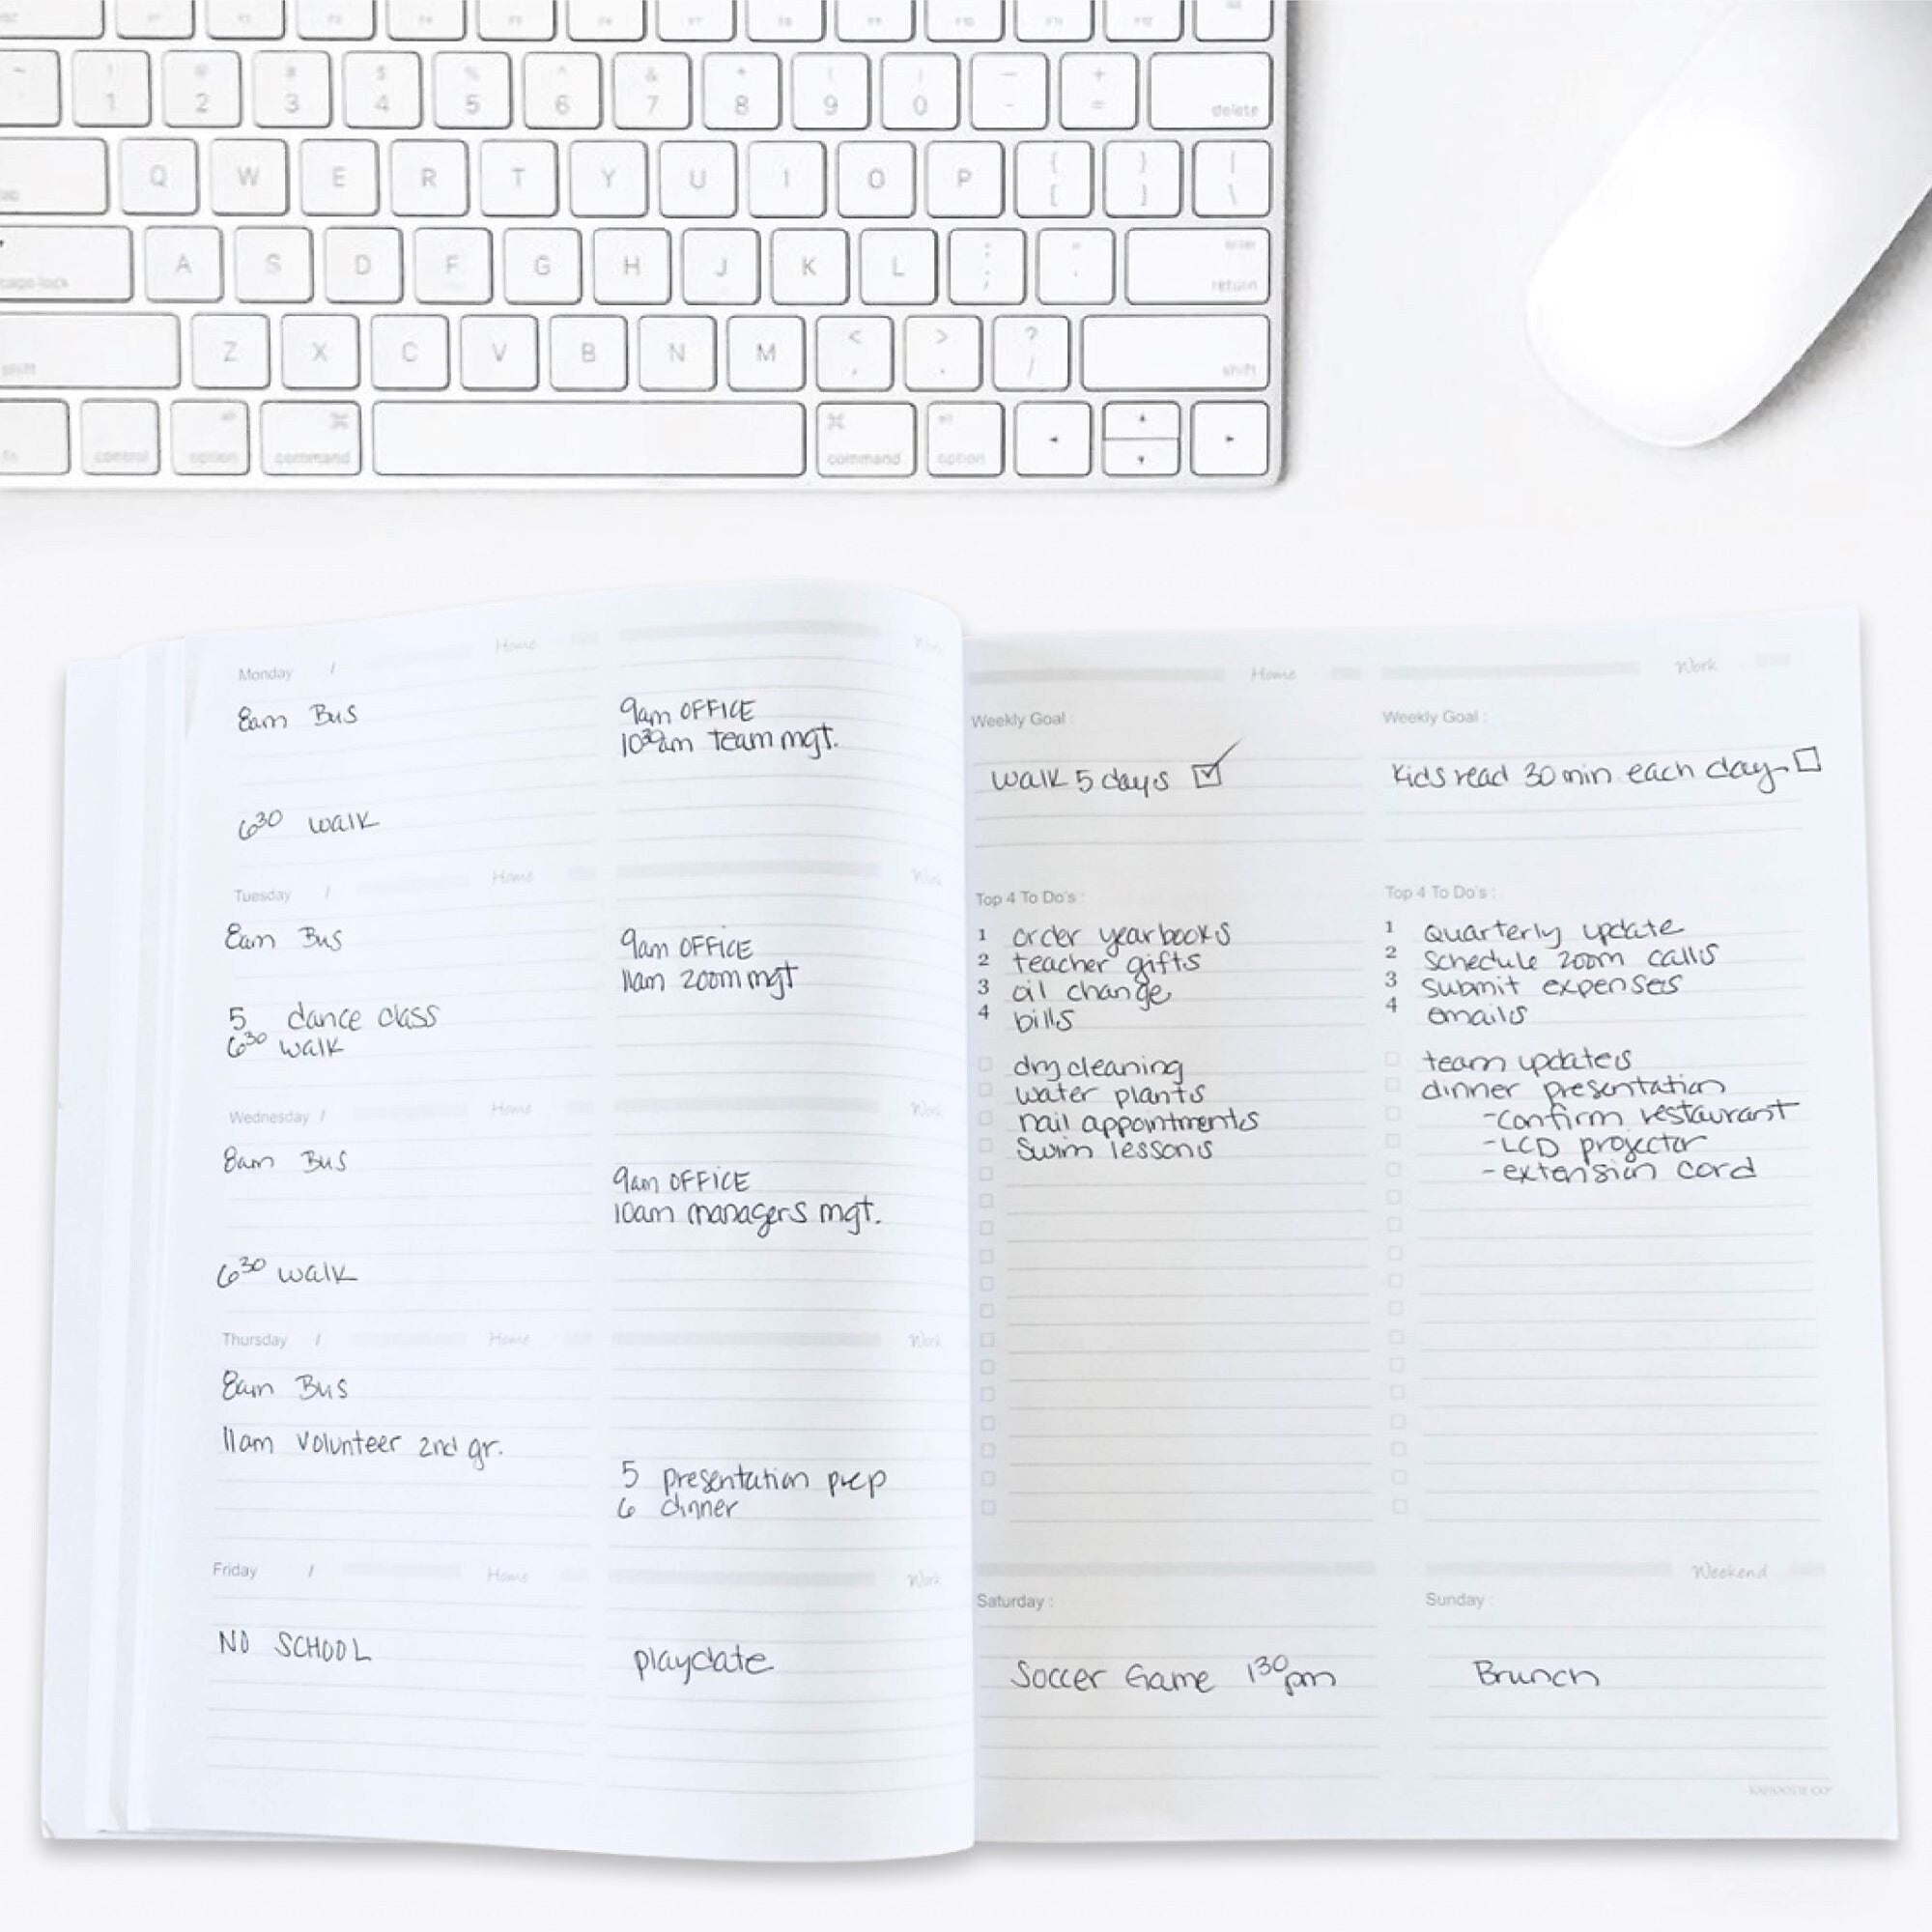 ~
! @ # $ % ^ & * ( ) — +
1 2 3 4 5 6 7 8 9 0 - =
delete
Q W E R T Y U I O P { } |
[ ] \
A S D F G H J K L : "
; '
caps lock
return
Z X C V B N M < > ?
, . /
shift
shift
fn control option command command option
alt alt
Monday / Home Work
8am Bus
9am OFFICE
10³⁰am team mgt.
6³⁰ walk
Tuesday / Home Work
8am Bus
9am OFFICE
11am zoom mgt
5 dance class
6³⁰ walk
Wednesday / Home Work
8am Bus
9am OFFICE
10am managers mgt.
6³⁰ walk
Thursday / Home Work
8am Bus
11am Volunteer 2nd gr.
5 presentation prep
6 dinner
Friday / Home Work
NO SCHOOL
playdate
Home
Weekly Goal :
walk 5 days ☑
Top 4 To Do's :
1 order yearbooks
2 teacher gifts
3 oil change
4 bills
dry cleaning
water plants
nail appointments
swim lessons
Work
Weekly Goal :
Kids read 30 min each day ☐
Top 4 To Do's :
1 quarterly update
2 schedule zoom calls
3 submit expenses
4 emails
team updates
dinner presentation
-confirm restaurant
-LCD projector
-extension cord
Weekend
Saturday :
Soccer Game 1³⁰pm
Sunday :
Brunch